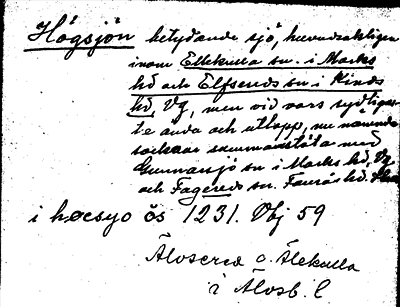 Högsjön betydande sjö, huvudsakligen
inom Ellekulla sn. i Marks
hd och Elfsereds sn i Kinds
hd, Vg, men vid vars sydligas-
te ända och utlopp, nu nämnda
socknar sammanstöta med
Gunnarsjö sn i Marks hd, Vg
och Fagereds sn. Faurås hd.
i høcsyo ös 1231. Vbj 59
Älvsered o. Älekulla
i Älvsb. l